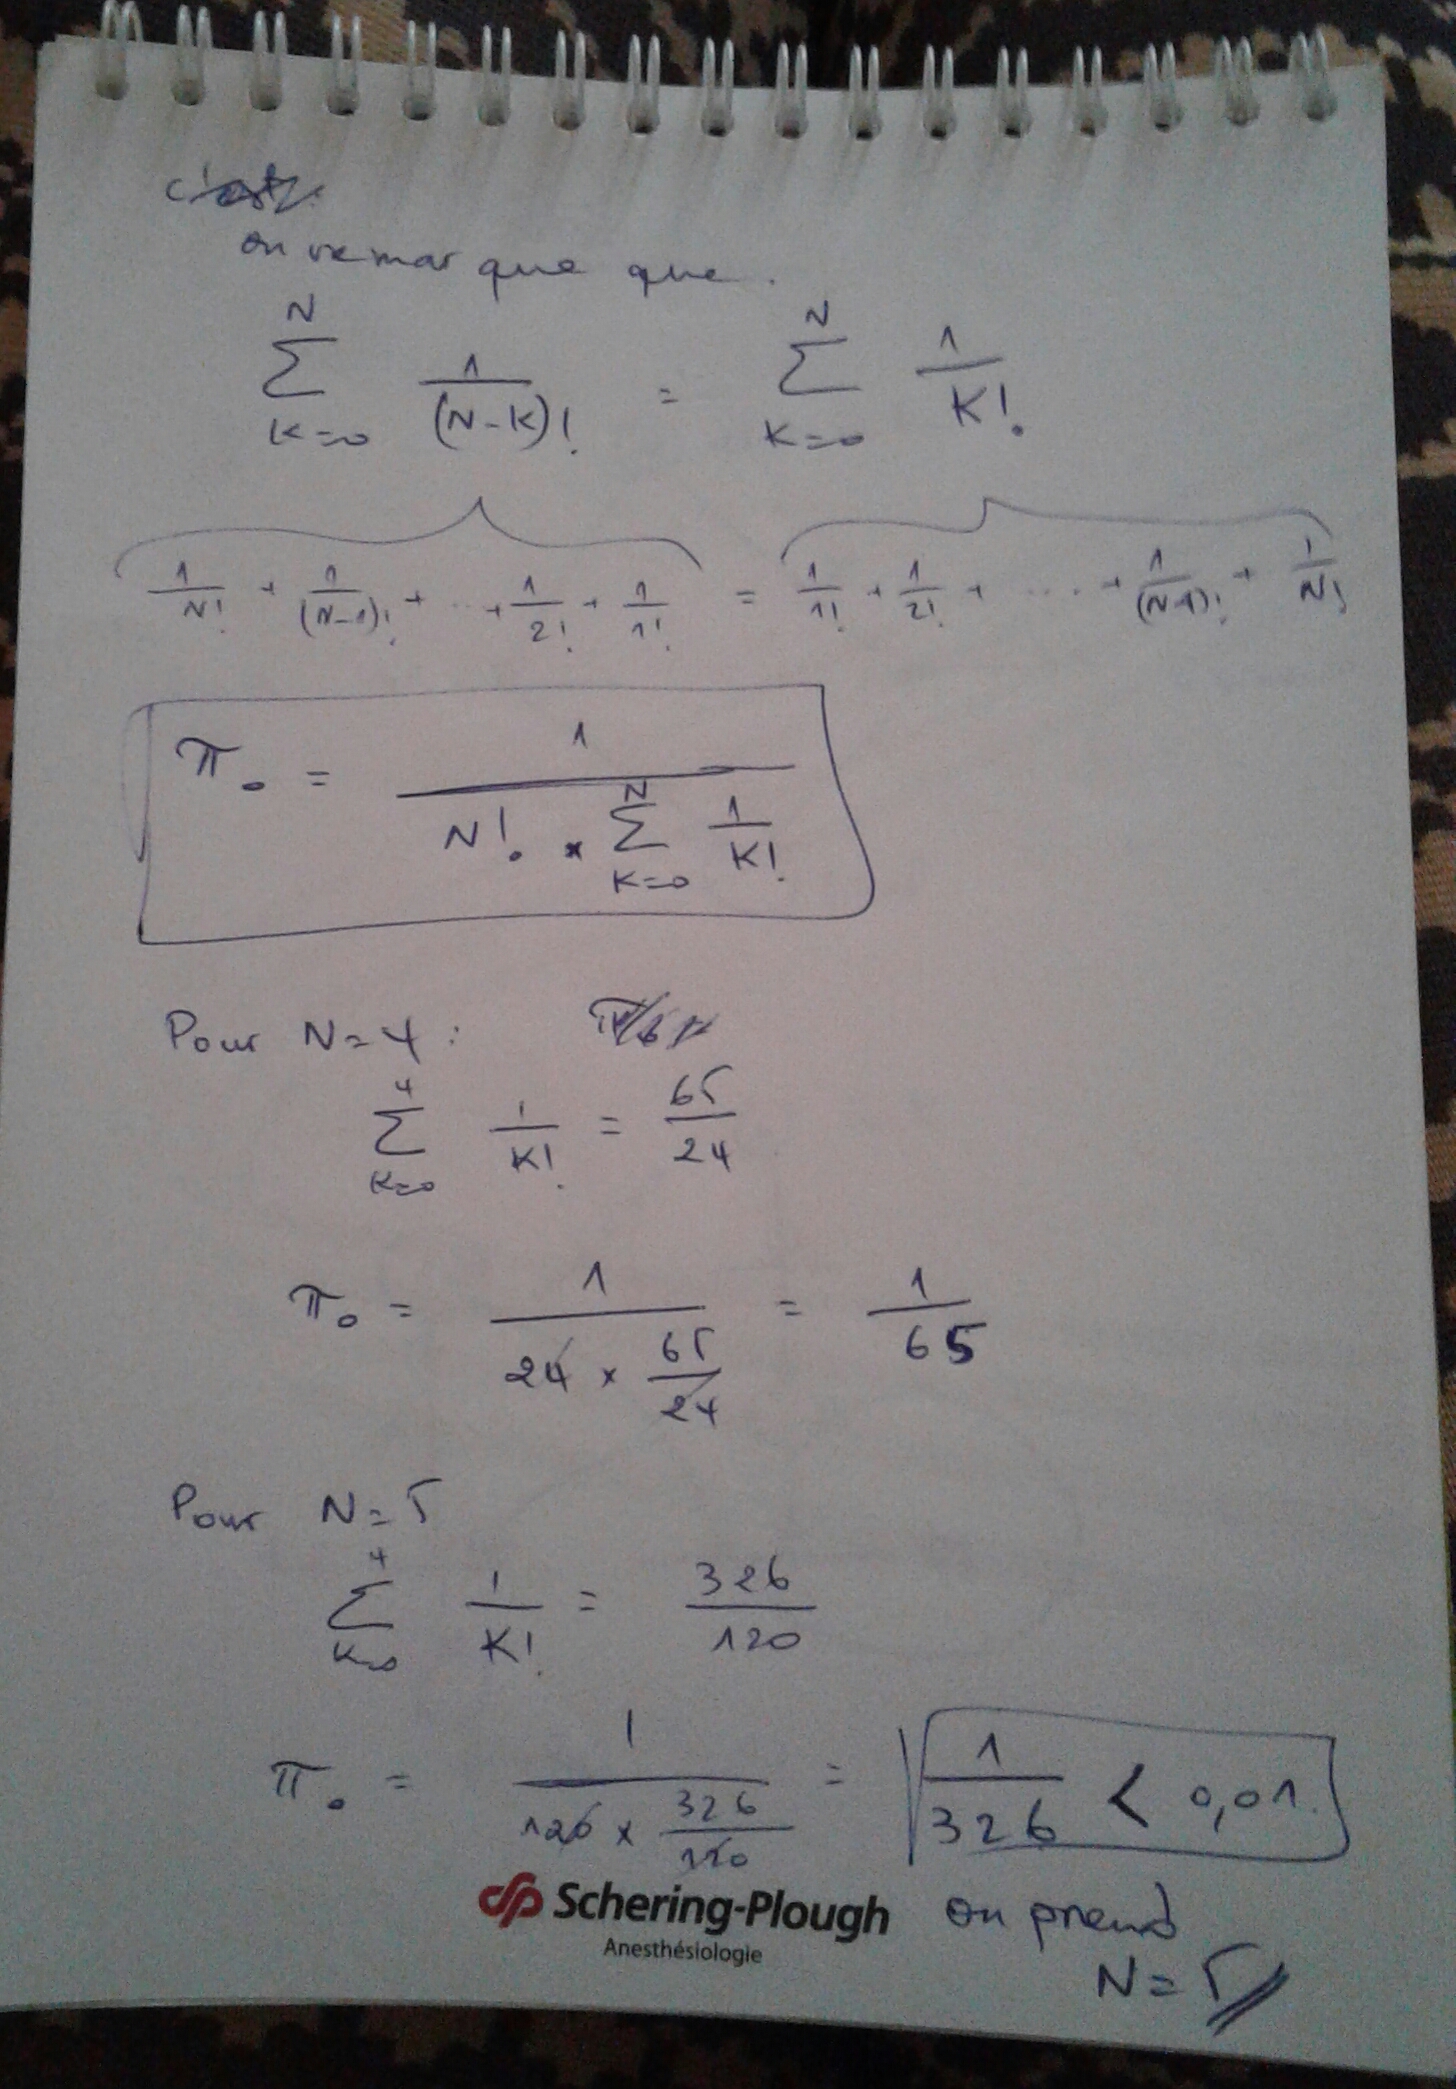 c'est
on remarque que.
N ∑ K=0 1/(N-K)! = N ∑ K=0 1/K!
1/N! + 1/(N-1)! + ... + 1/2! + 1/1! = 1/1! + 1/2! + .... + 1/(N-1)! + 1/N!
π0 = 1 / (N! × N ∑ K=0 1/K!)
Pour N=4 :
4 ∑ K=0 1/K! = 65/24
π0 = 1 / (24 × 65/24) = 1/65
Pour N=5
4 ∑ K=0 1/K! = 326/120
π0 = 1 / (120 × 326/120) = 1/326 < 0,01.
Schering-Plough
Anesthésiologie
on prend
N=5